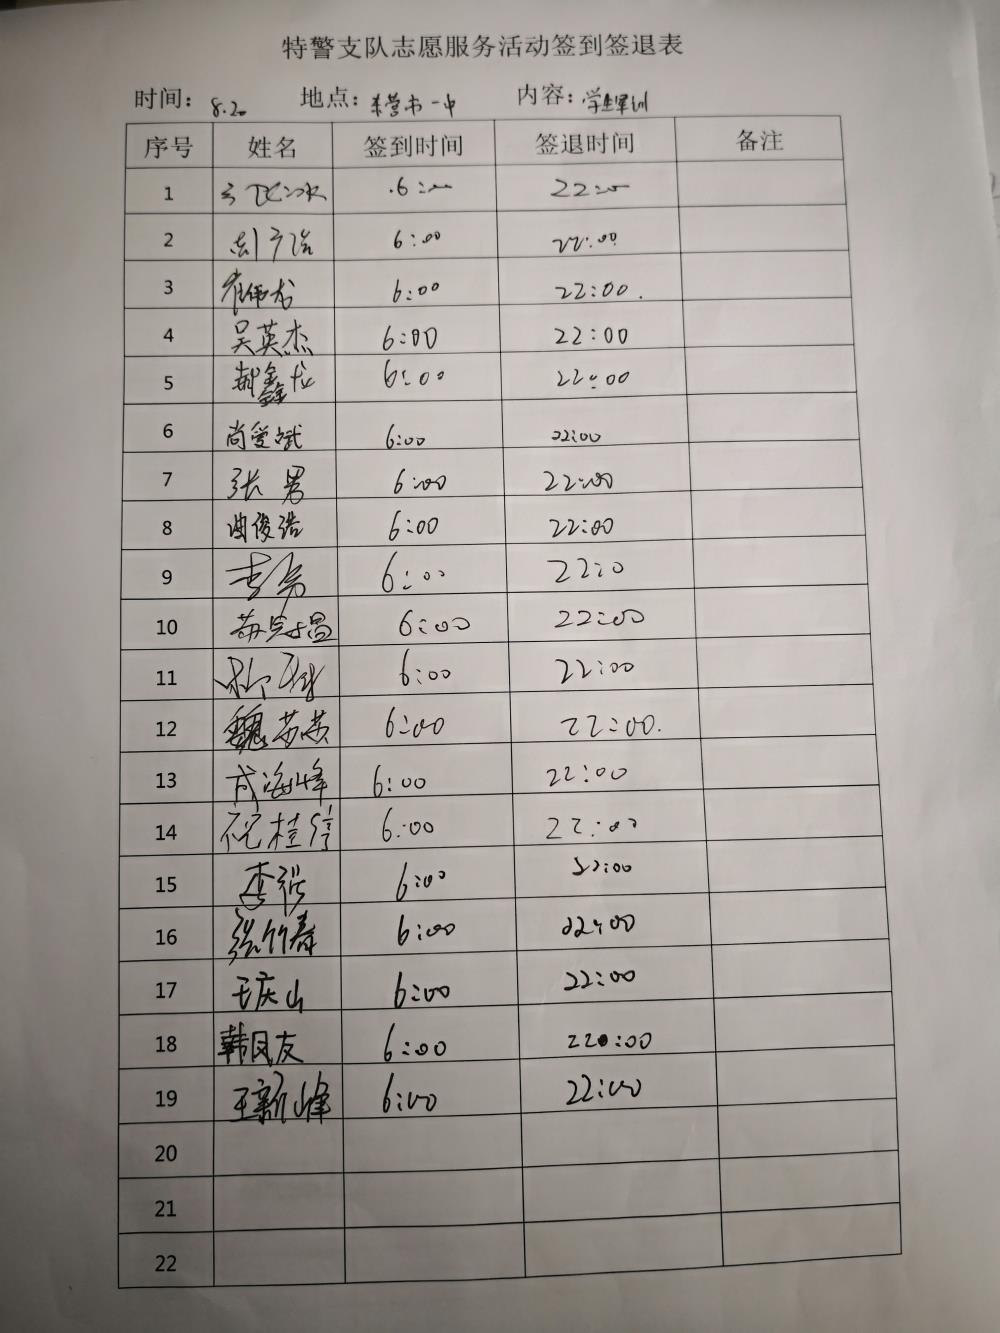 特警支队志愿服务活动签到签退表
时间: 8.20 地点: 东营市一中 内容: 学生军训
序号 姓名 签到时间 签退时间 备注
1 6:00 22:00
2 6:00 22:00
3 崔伟龙 6:00 22:00.
4 吴英杰 6:00 22:00
5 郝鑫龙 6:00 22:00
6 尚爱斌 6:00 22:00
7 张男 6:00 22:00
8 曲俊浩 6:00 22:00
9 6:00 22:0
10 6:00 22:00
11 6:00 22:00
12 魏苏芸 6:00 22:00.
13 成海峰 6:00 22:00
14 祝桂 6:00 22:00
15 李 6:00 22:00
16 张竹春 6:00 22:00
17 王庆山 6:00 22:00
18 韩凤友 6:00 22:00
19 王新峰 6:00 22:00
20
21
22